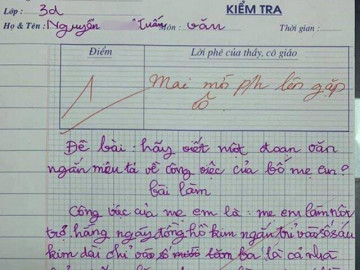 Lớp: 3d KIỂM TRA
Họ & Tên: Nguyễn Tuấn Môn: văn Thời gian:
Điểm Lời phê của thầy, cô giáo
1 Mai mố p/h lên gặp
cô
Đề bài: hãy viết một đoạn văn
ngắn miêu tả về công việc của bố mẹ em?
bài làm
Công việc của mẹ em là: mẹ em làm nội
trợ hằng ngày đồng hồ kim ngắn chỉ vào số sáu
kim dài chỉ vào số mười lăm ba là cả nhà